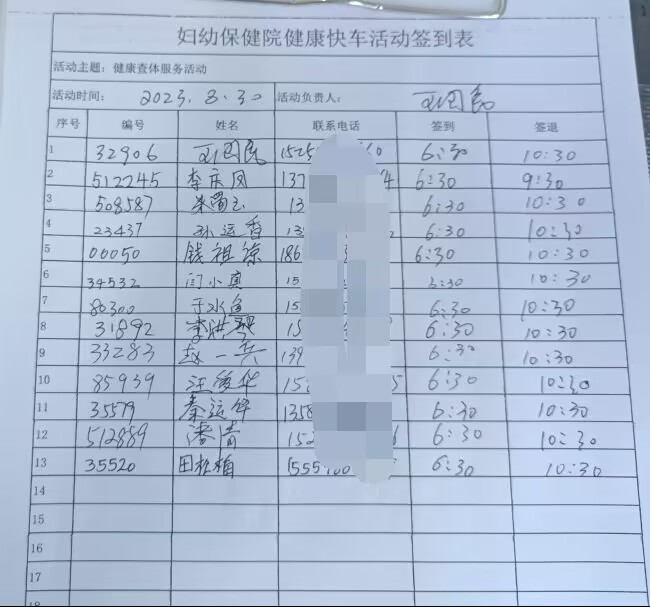 妇幼保健院健康快车活动签到表
活动主题：健康查体服务活动
活动时间： 2023.8.30 活动负责人： 王国民
序号 编号 姓名 联系电话 签到 签退
1 32906 王国民 1525 60 6:30 10:30
2 512245 李庆凤 137 4 6:30 9:30
3 508587 13 6:30 10:30
4 23437 孙运香 13 6:30 10:30
5 00050 钱祖琼 186 6:30 10:30
6 34532 闫小真 15 6:30 10:30
7 80300 于水鱼 15 6:30 10:30
8 31892 李洪 15 6:30 10:30
9 33283 赵一兵 139 6:30 10:30
10 85939 汪爱华 15 5 6:30 10:30
11 35579 秦运华 1358 6:30 10:30
12 512889 潘清 152 6:30 10:30
13 35520 田 1555 6:30 10:30
14
15
16
17
18